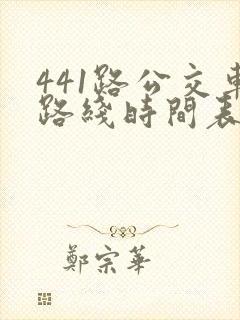 441路公交車
路綫時間表
鄭宗華